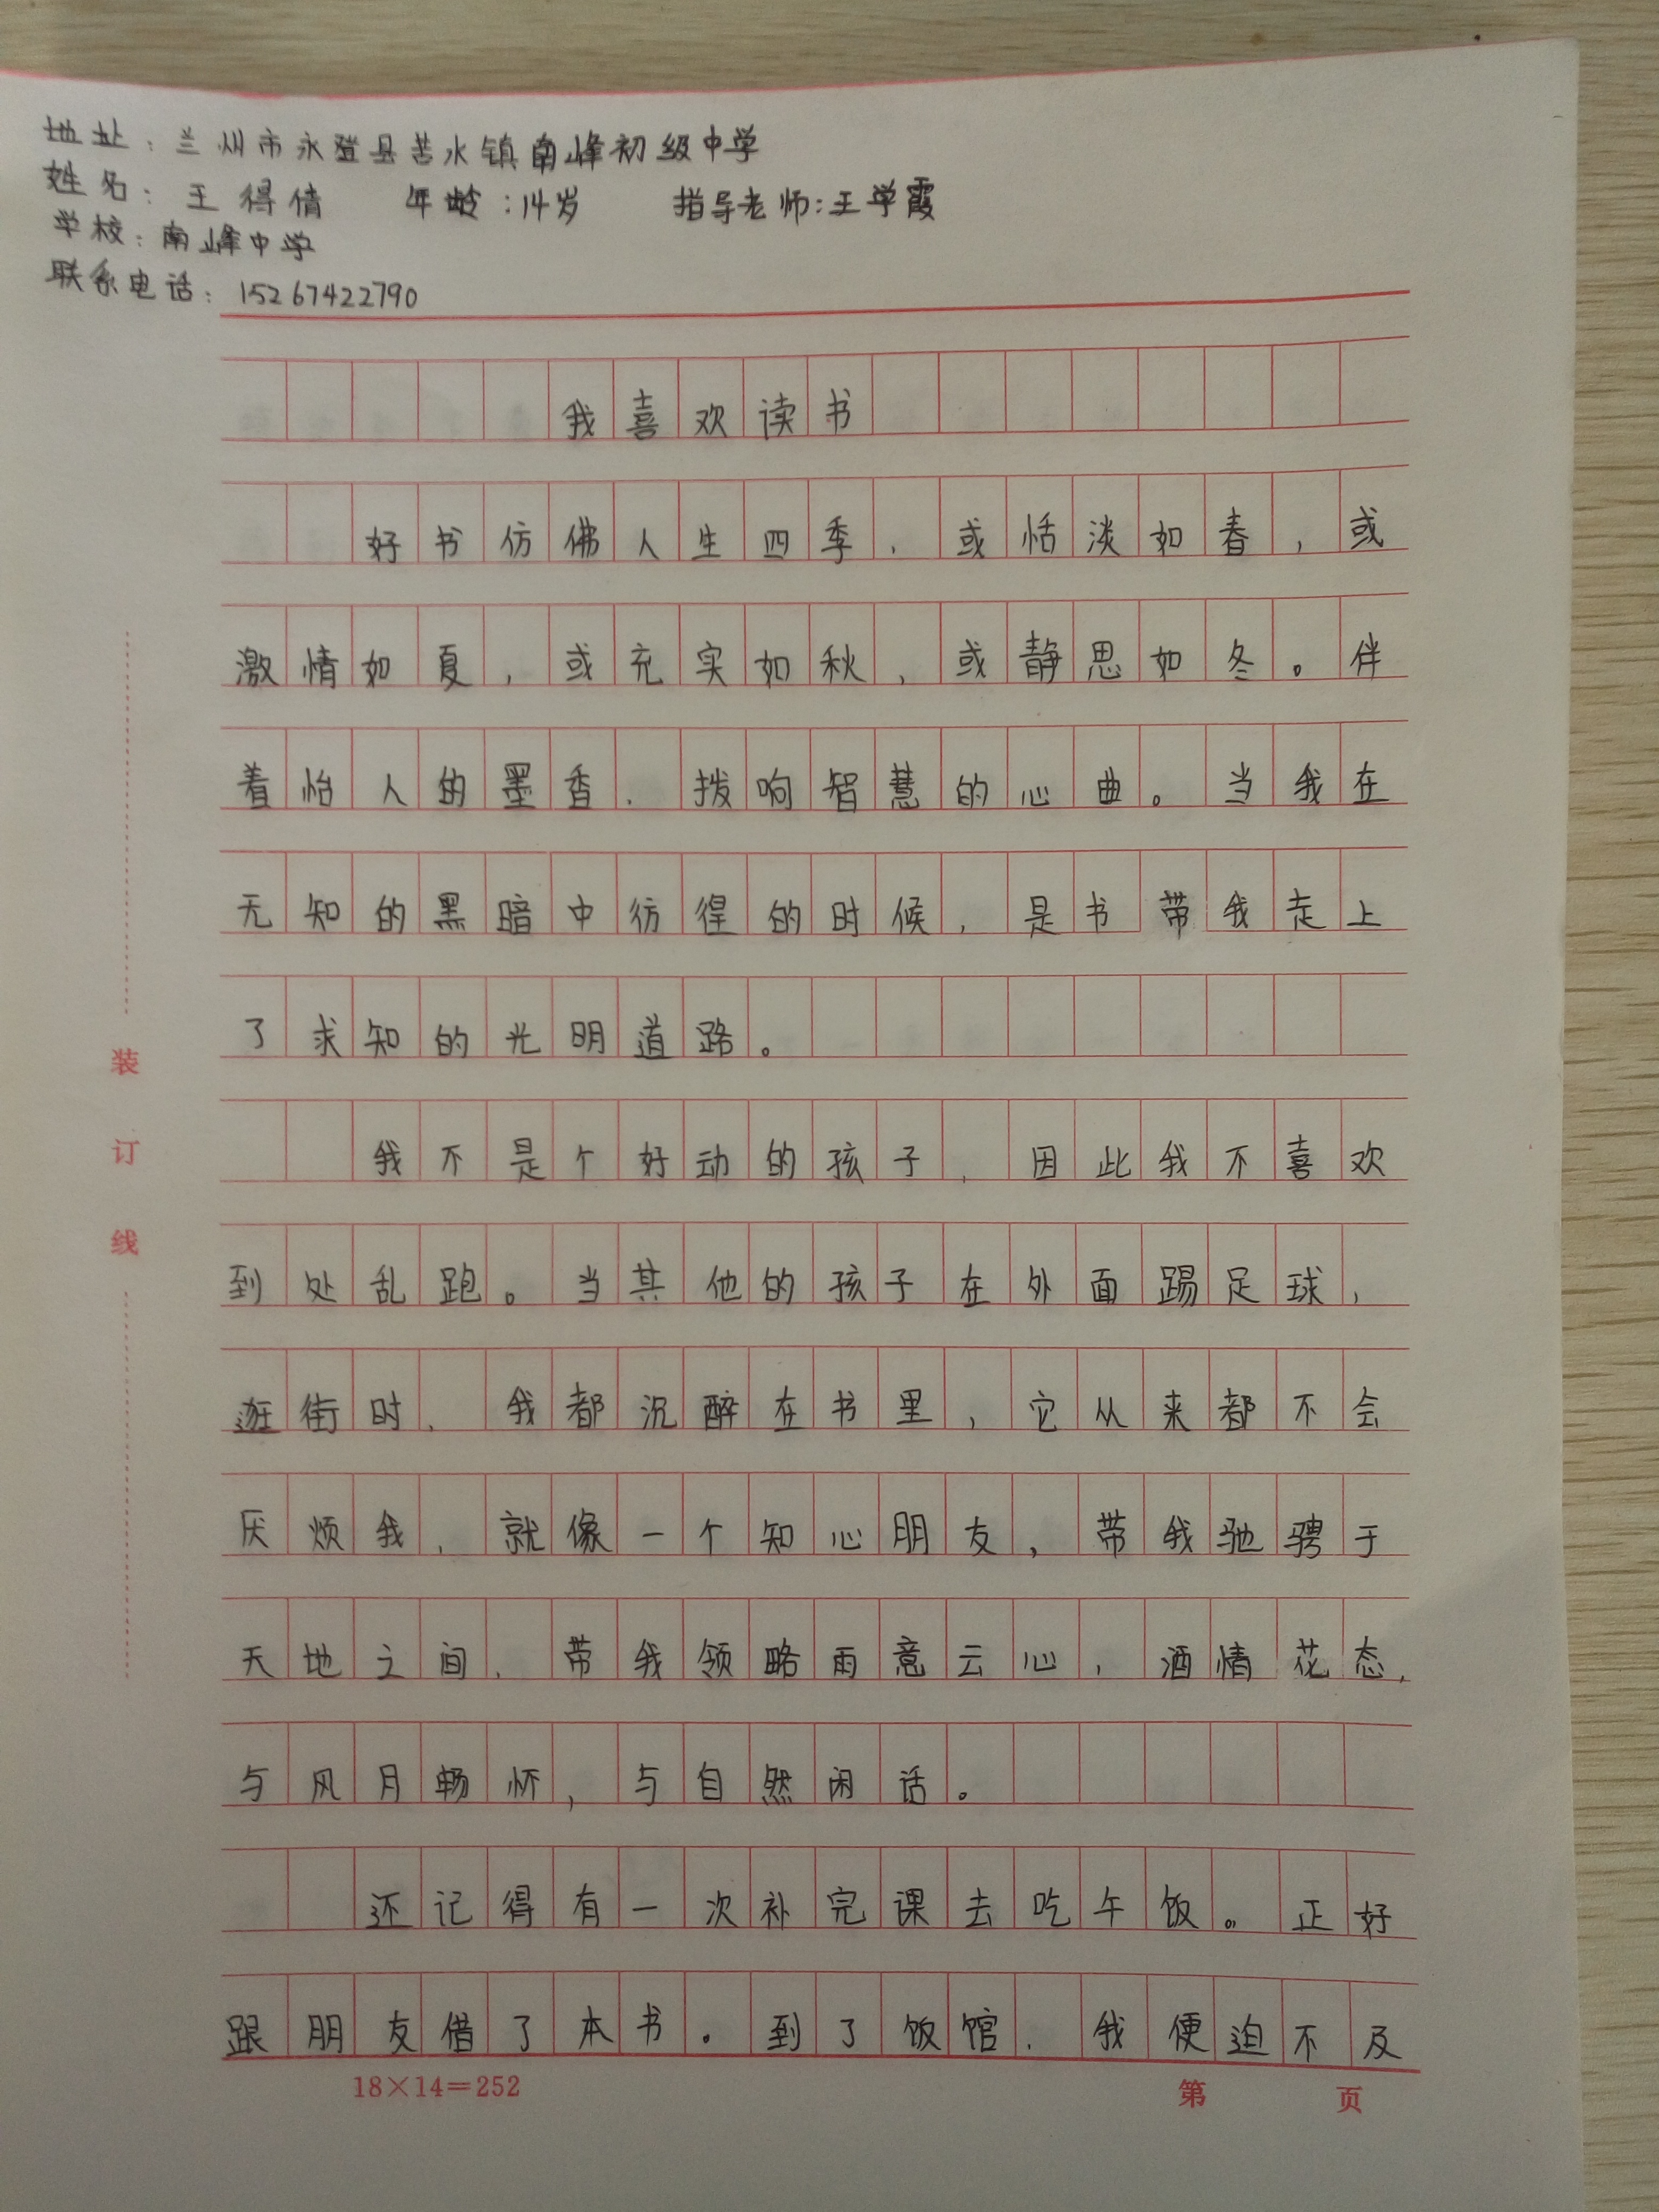 地址：兰州市永登县苦水镇南峰初级中学
姓名：王得倩 年龄：14岁 指导老师：王学霞
学校：南峰中学
联系电话：15267422790
我喜欢读书
好书仿佛人生四季，或恬淡如春，或
激情如夏，或充实如秋，或静思如冬。伴
着怡人的墨香，拨响智慧的心曲。当我在
无知的黑暗中彷徨的时候，是书带我走上
了求知的光明道路。
我不是个好动的孩子，因此我不喜欢
到处乱跑。当其他的孩子在外面踢足球，
逛街时，我都沉醉在书里，它从来都不会
厌烦我，就像一个知心朋友，带我驰骋于
天地之间，带我领略雨意云心，酒情花态，
与风月畅怀，与自然闲话。
还记得有一次补完课去吃午饭。正好
跟朋友借了本书。到了饭馆，我便迫不及
装订线
18×14=252 第 页